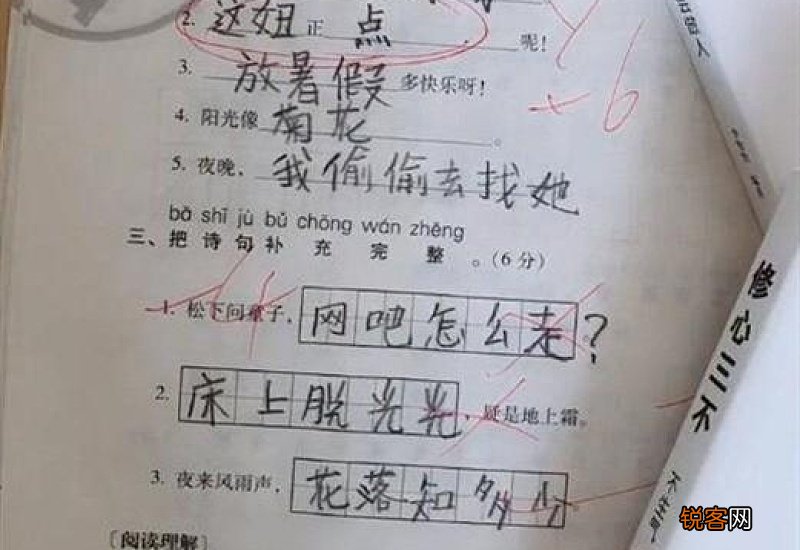 2. 这妞正点呢!
3. 放暑假多快乐呀!
4. 阳光像菊花。
5. 夜晚,我偷偷去找她
bǎ shī jù bǔ chōng wán zhěng
三、把诗句补充完整。(6分)
1. 松下问童子,网吧怎么走?
2. 床上脱光光,疑是地上霜。
3. 夜来风雨声,花落知多少。
[阅读理解]
+6
修心三不
锐客网